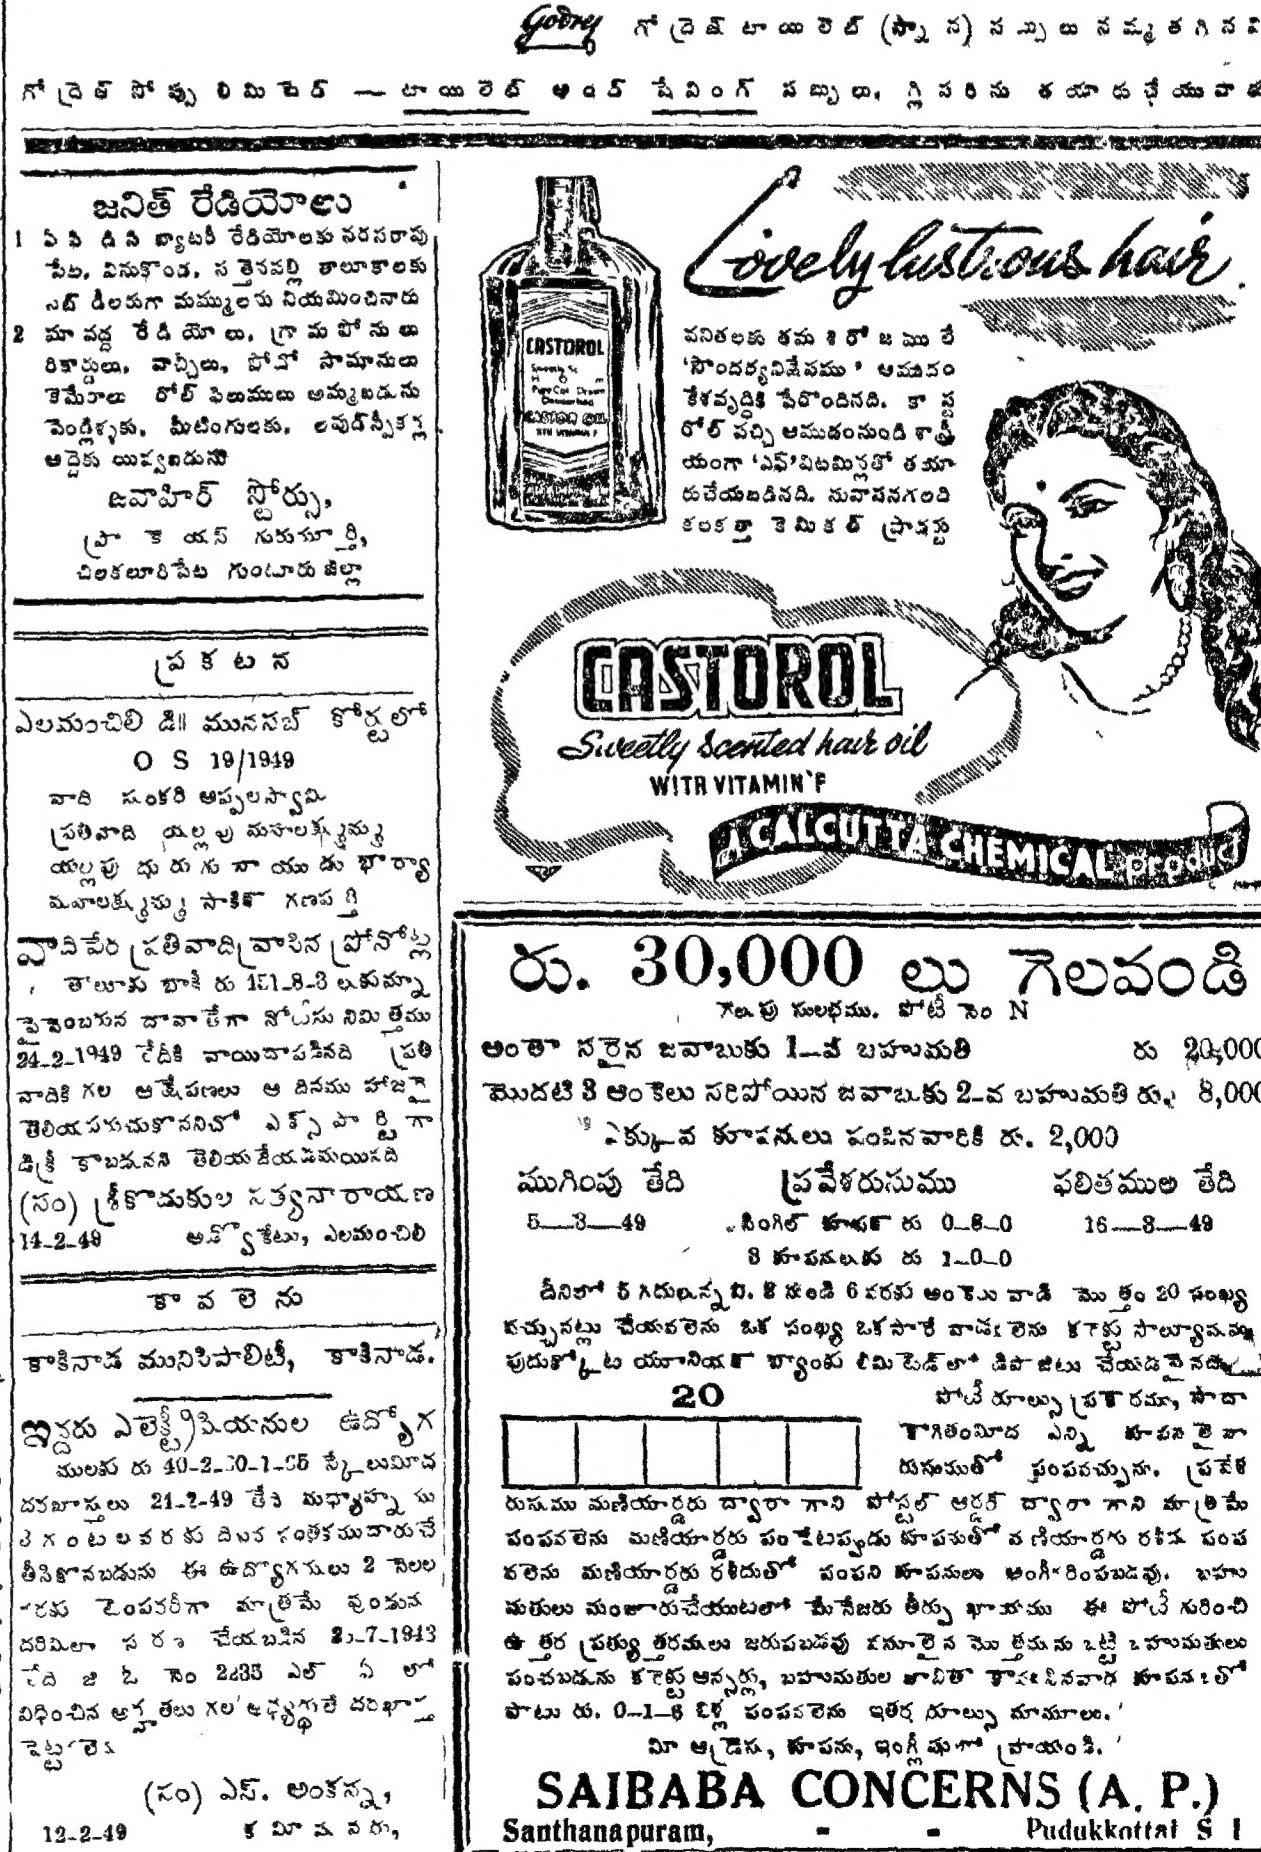 Godrej గోద్రెజ్ టాయిలెట్ (స్నాన) సబ్బులు నమ్మతగినవి
గోద్రెజ్ సోప్సు లిమిటెడ్ — టాయిలెట్ అండ్ షేవింగ్ సబ్బులు, గ్లిసరిను తయారుచేయువారు
జనిత్ రేడియోలు
1 ఏ సి డి సి బ్యాటరీ రేడియోలకు నరసరావు
పేట, వినుకొండ, సత్తెనపల్లి తాలూకాలకు
సబ్ డీలరుగా మమ్ములను నియమించినారు
2 మావద్ద రేడియోలు, గ్రామఫోనులు
రికార్డులు, వాచ్చీలు, ఫోటో సామానులు
కెమేరాలు రోల్ ఫిలుములు అమ్మబడును
పెండ్లిళ్ళకు, మీటింగులకు, లవుడ్‌స్పీకర్లు
అద్దెకు యివ్వబడును
జవాహిర్ స్టోర్సు,
ప్రొ కె యస్ గురుమూర్తి,
చిలకలూరిపేట గుంటూరు జిల్లా
ప్రకటన
ఎలమంచిలి డి॥ మునసబ్ కోర్టులో
O S 19/1949
వాది సుంకరి అప్పలస్వామి
ప్రతివాది యల్లపు మహలక్ష్మమ్మ
యల్లపు గురుగునాయుడు భార్యా
మహలక్ష్మమ్మ సాకిన్ గణపర్తి
వాదిపేర ప్రతివాది వ్రాసిన ప్రోనోట్ల
తాలూకు బాకీ రు 151-8-3 లకుమ్నా
పైనంబరున దావా తేగా నోటీసు నిమిత్తము
24-2-1949 తేదీకి వాయిదాపడినది ప్రతి
వాదికి గల ఆక్షేపణలు ఆ దినము హాజరై
తెలియపరుచుకొననిచో ఎక్స్ పార్టీగా
డిక్రీ కాబడునని తెలియజేయడమయినది
(సం) శ్రీకొడుకుల సత్యనారాయణ
14-2-49 అడ్వొకేటు, ఎలమంచిలి
కావలెను
కాకినాడ మునిసిపాలిటీ, కాకినాడ.
ఇద్దరు ఎలెక్ట్రీషియనుల ఉద్యోగ
ములకు రు 40-2-50-1-65 స్కేలుమీద
దరఖాస్తులు 21-2-49 తేది మధ్యాహ్న
గంటలవరకు దిగువ సంతకముదారుచే
తీసికొనబడును ఈ ఉద్యోగములు 2 నెలల
వరకు టెంపరరీగా మాత్రమే వుండును
దరిమిలా చేయబడిన
తేది జి ఓ నెం ఎల్ ఏ లో
విధించిన అర్హతలు గల అభ్యర్థులే దరఖాస్తు
పెట్టవలెను
(సం) ఎస్. అంకన్న,
12-2-49 కమీషనరు,
Lovely lustrous hair
వనితలకు తమ శిరోజములే
'సౌందర్యనిక్షేపము' ఆముదం
కేశవృద్ధికి పేరొందినది. కాస్ట
రోల్ పచ్చి ఆముదంనుండి శాస్త్రీ
యంగా 'ఎఫ్'విటమిన్లతో తయా
రుచేయబడినది. సువాసనగలది
కలకత్తా కెమికల్ ప్రొడక్టు
CASTOROL
CASTOROL
Sweetly scented hair oil
WITH VITAMIN 'F'
A CALCUTTA CHEMICAL product
రు. 30,000 లు గెలవండి
గెలుపు సులభము. పోటీ నెం N
అంతా సరైన జవాబుకు 1-వ బహుమతి రు 20,000
మొదటి 3 అంకెలు సరిపోయిన జవాబుకు 2-వ బహుమతి రు. 8,000
ఎక్కువ కూపనులు పంపినవారికి రు. 2,000
ముగింపు తేది ప్రవేశరుసుము ఫలితముల తేది
5—3—49 సింగిల్ కూపన్ రు 0-8-0 16—3—49
3 కూపనులకు రు 1-0-0
దీనిలో 5 గదులున్నవి. నుండి 6 వరకు అంకెలు వాడి మొత్తం 20 సంఖ్య
వచ్చునట్లు చేయవలెను ఒక సంఖ్య ఒకసారే వాడవలెను కరెక్టు సొల్యూషను
పుదుక్కోట యూనియన్ బ్యాంకు లిమిటెడ్ లో డిపాజిటు చేయబడినది
20
పోటీ రూల్సు ప్రకారము, సాదా
కాగితంమీద ఎన్ని కూపనులైనా
రుసుముతో పంపవచ్చును. ప్రవేశ
రుసుము మణియార్డరు ద్వారా గాని పోస్టల్ ఆర్డర్ ద్వారా గాని మాత్రమే
పంపవలెను మణియార్డరు పంపేటప్పుడు కూపనుతో మణియార్డరు రశీదు పంప
వలెను మణియార్డరు రశీదుతో పంపని కూపనులు అంగీకరింపబడవు. బహు
మతులు మంజూరుచేయుటలో మేనేజరు తీర్పు ఖాయము ఈ పోటీ గురించి
ఉత్తర ప్రత్యుత్తరములు జరుపబడవు వసూలైన మొత్తమును బట్టి బహుమతులు
పంచబడును కరెక్టు ఆన్సర్లు, బహుమతుల జాబితా కావలసినవారు కూపనులతో
పాటు రు. 0-1-6 బిళ్ల పంపవలెను ఇతర రూల్సు మామూలు.
మీ అడ్రెసు, కూపను, ఇంగ్లీషులో వ్రాయండి.
SAIBABA CONCERNS (A. P.)
Santhanapuram, - - Pudukkottai S I